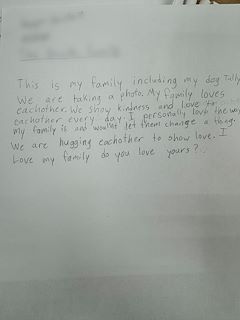 This is my family including my dog Tully
We are taking a photo. My family loves
eachother. We show kindness and love to
eachother every day. I personally love the way
my family is and wouldnt let them change a thing.
We are hugging eachother to show love. I
Love my family do you love yours?